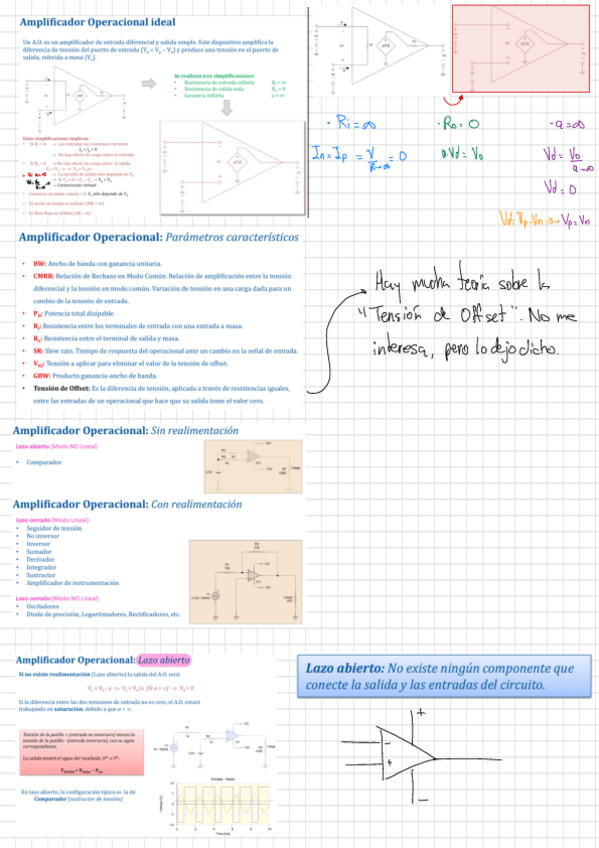 Amplificador Operacional ideal
Un A.O. es un amplificador de entrada diferencial y salida simple. Este dispositivo amplifica la
diferencia de tensión del puerto de entrada (Vd = Vp – Vn) y produce una tensión en el puerto de
salida, referida a masa (Vo).
Se realizan tres simplificaciones
• Resistencia de entrada infinita Ri = ∞
• Resistencia de salida nula Ro = 0
• Ganancia infinita a = ∞
Estas simplificaciones implican
• Si Ri = ∞ → Las entradas no consumen corriente
In = Ip = 0
→ No hay efecto de carga sobre la entrada
• Si Ro = 0 → No hay efecto de carga sobre la salida
→ La tensión de salida sólo depende de Vd
→ Cortocircuito virtual
• El ancho de banda es infinito (BW = ∞)
• El Slew Rate es infinito (SR = ∞)
· Ri = ∞
· Ro = 0
· a = ∞
In = Ip = V/Ri→∞ = 0
a·Vd = Vo
Vd = Vo/a→∞
Vd = 0
Vd = Vp - Vn = 0 → Vp = Vn
Amplificador Operacional: Parámetros característicos
• BW: Ancho de banda con ganancia unitaria.
• CMRR: Relación de Rechazo en Modo Común. Relación de amplificación entre la tensión
diferencial y la tensión en modo común. Variación de tensión en una carga dada para un
cambio de la tensión de entrada.
• PD: Potencia total disipable.
• Ri: Resistencia entre los terminales de entrada con una entrada a masa.
• Ro: Resistencia entre el terminal de salida y masa.
• SR: Slew rate, Tiempo de respuesta del operacional ante un cambio en la señal de entrada.
• VIO: Tensión a aplicar para eliminar el valor de la tensión de offset.
• GBW: Producto ganancia-ancho de banda.
• Tensión de Offset: Es la diferencia de tensión, aplicada a través de resistencias iguales,
entre las entradas de un operacional que hace que su salida tome el valor cero.
Hay mucha teoría sobre la
"Tensión de Offset". No me
interesa, pero lo dejo dicho.
Amplificador Operacional: Sin realimentación
Lazo abierto (Modo NO Lineal)
• Comparador
Amplificador Operacional: Con realimentación
Lazo cerrado (Modo Lineal)
• Seguidor de tensión
• No inversor
• Inversor
• Sumador
• Derivador
• Integrador
• Sustractor
• Amplificador de instrumentación
Lazo cerrado (Modo NO Lineal)
• Osciladores
• Diodo de precisión, Logaritmadores, Rectificadores, etc.
Amplificador Operacional: Lazo abierto
Si no existe realimentación (Lazo abierto) la salida del A.O. será:
Vo = Vd · a ⇒ Vd = Vo/a (Si a = ∞) ⇒ Vd = 0
Si la diferencia entre las dos tensiones de entrada no es cero, el A.O. estará
trabajando en saturación, debido a que a = ∞.
Tensión de la patilla + (entrada no inversora) menos la
tensión de la patilla - (entrada inversora), con su signo
correspondiente.
La salida tendrá el signo del resultado, V⁺ o V⁻.
En lazo abierto, la configuración típica es la de
Comparador (sustractor de tensión)
Lazo abierto: No existe ningún componente que
conecte la salida y las entradas del circuito.
+
-
+
-